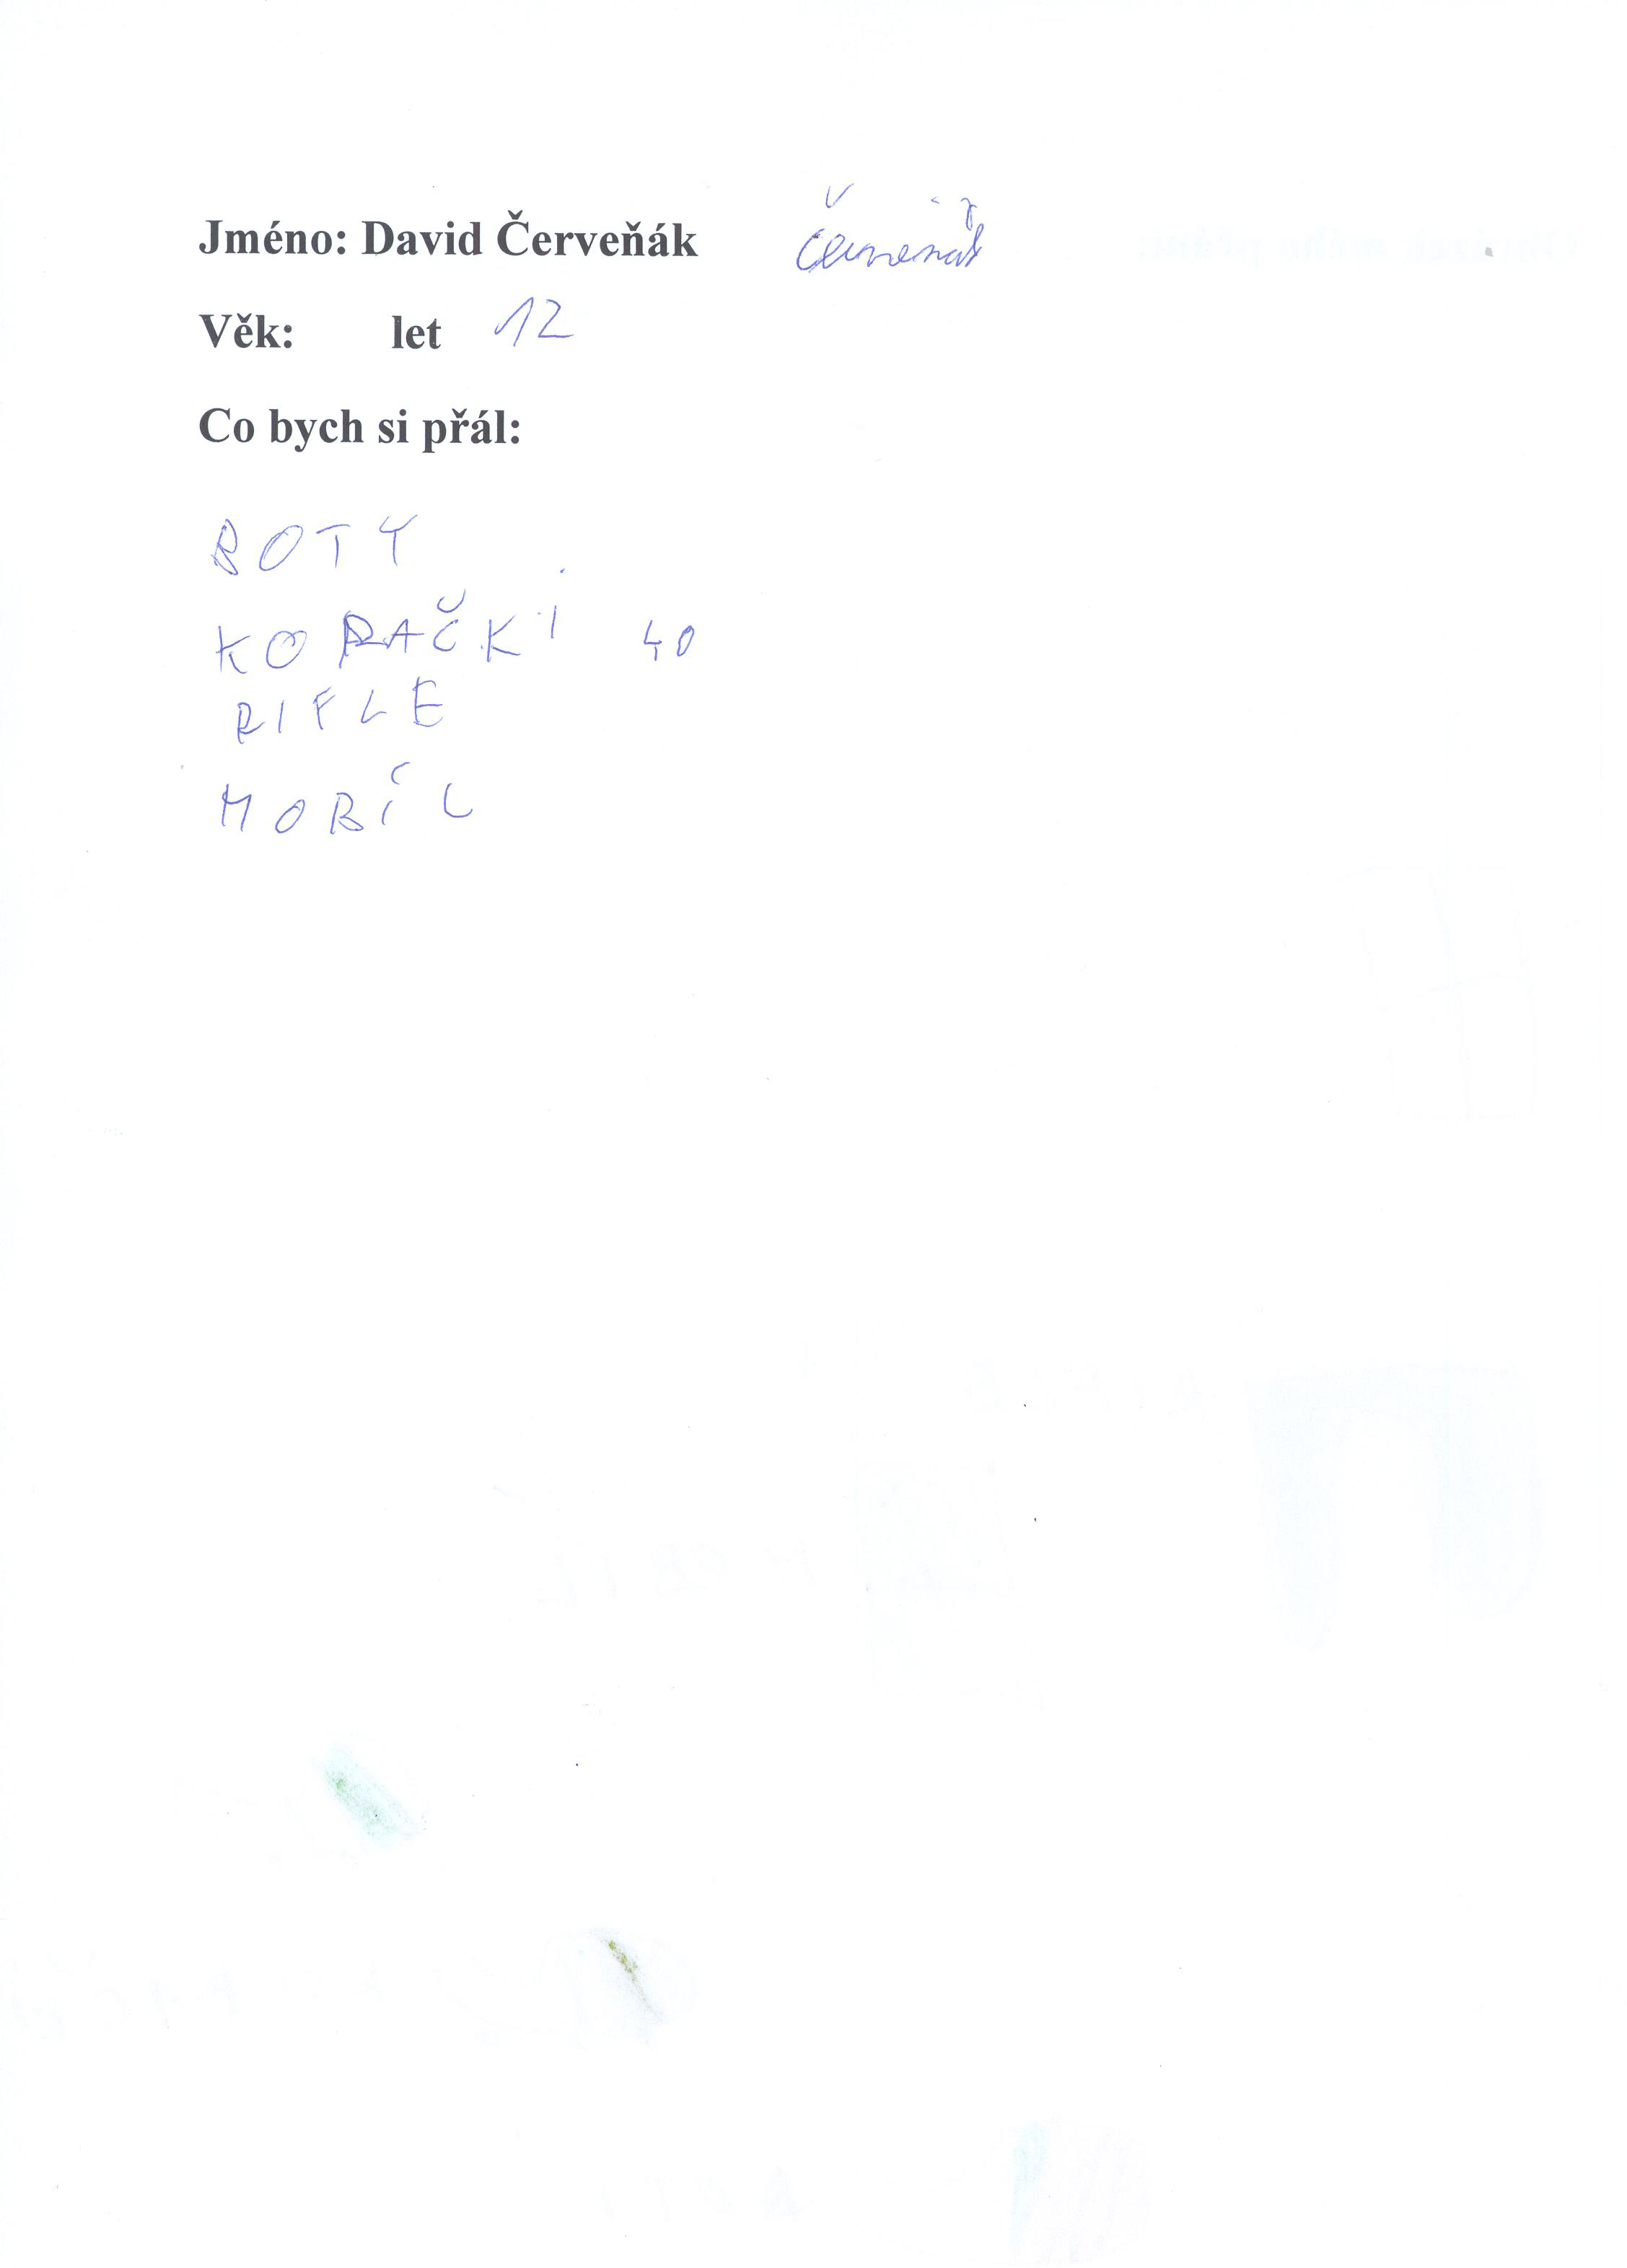 Jméno: David Červeňák Červeňák
Věk: let 12
Co bych si přál:
BOTY
KORAČKI 40
RIFLE
MOBÍL